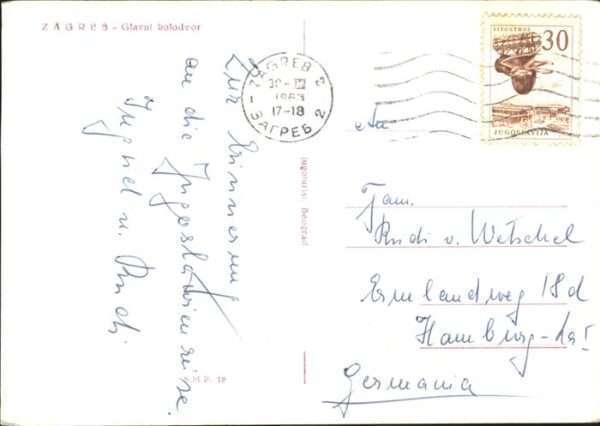 ZAGREB - Glavni kolodvor
Zur Erinnerung
an die Jugoslawienreise.
u. Rudi
ZAGREB 2
1963
17-18
ЗАГРЕБ 2
30
JUGOSLAVIJA
Jugoturist Beograd
An
Fam.
Rudi v. Wetschel
Ermlandweg 18d
Hamburg
Germania